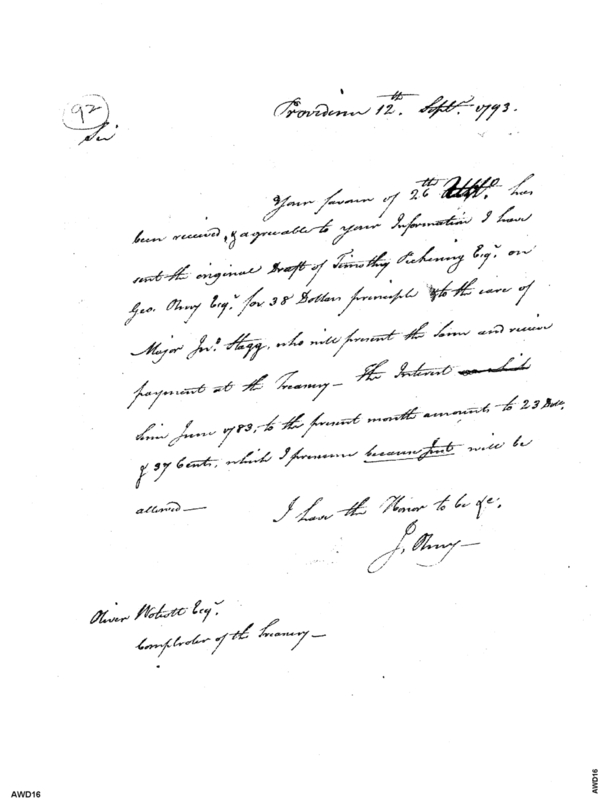 92
Providence 12th. Sept. 1793.
Sir
Your favour of 26th has
been received, & agreeable to your Information I have
sent the original Draft of Timothy Pickering Esqr. on
Geo. Olney Esqr. for 38 Dollars principle to the care of
Major Jno. Stagg, who will present the same and recieve
payment at the Treasury— the Interest
since June 1783, to the present month amounts to 23 Dolls.
& 37 Cents, which I presume because Just will be
allowed—
I have the Honor to be &c.
J. Olney—
Oliver Wolcott Esqr.
Comptroler of the Treasury—
AWD16
AWD16